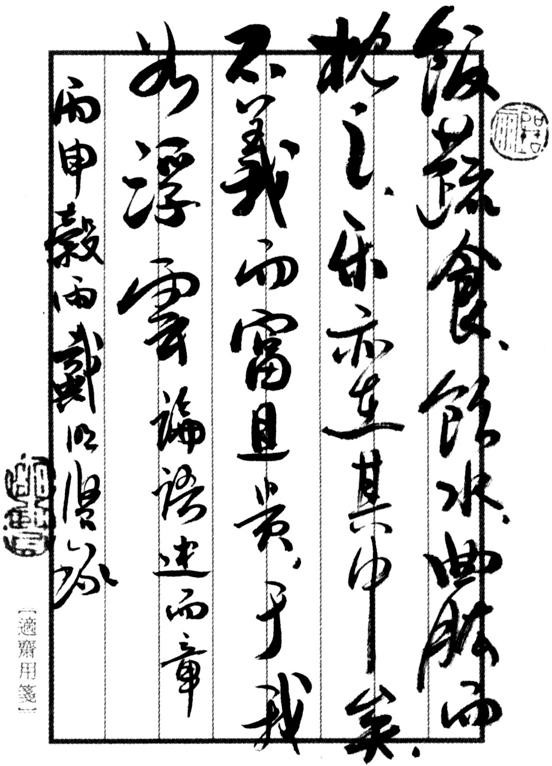 飯蔬食、飲水、曲肱而
枕之、乐亦在其中矣.
不義而富且贵、于我
如浮雲論語述而章
丙申穀雨戴明賢录
【適齋用箋】